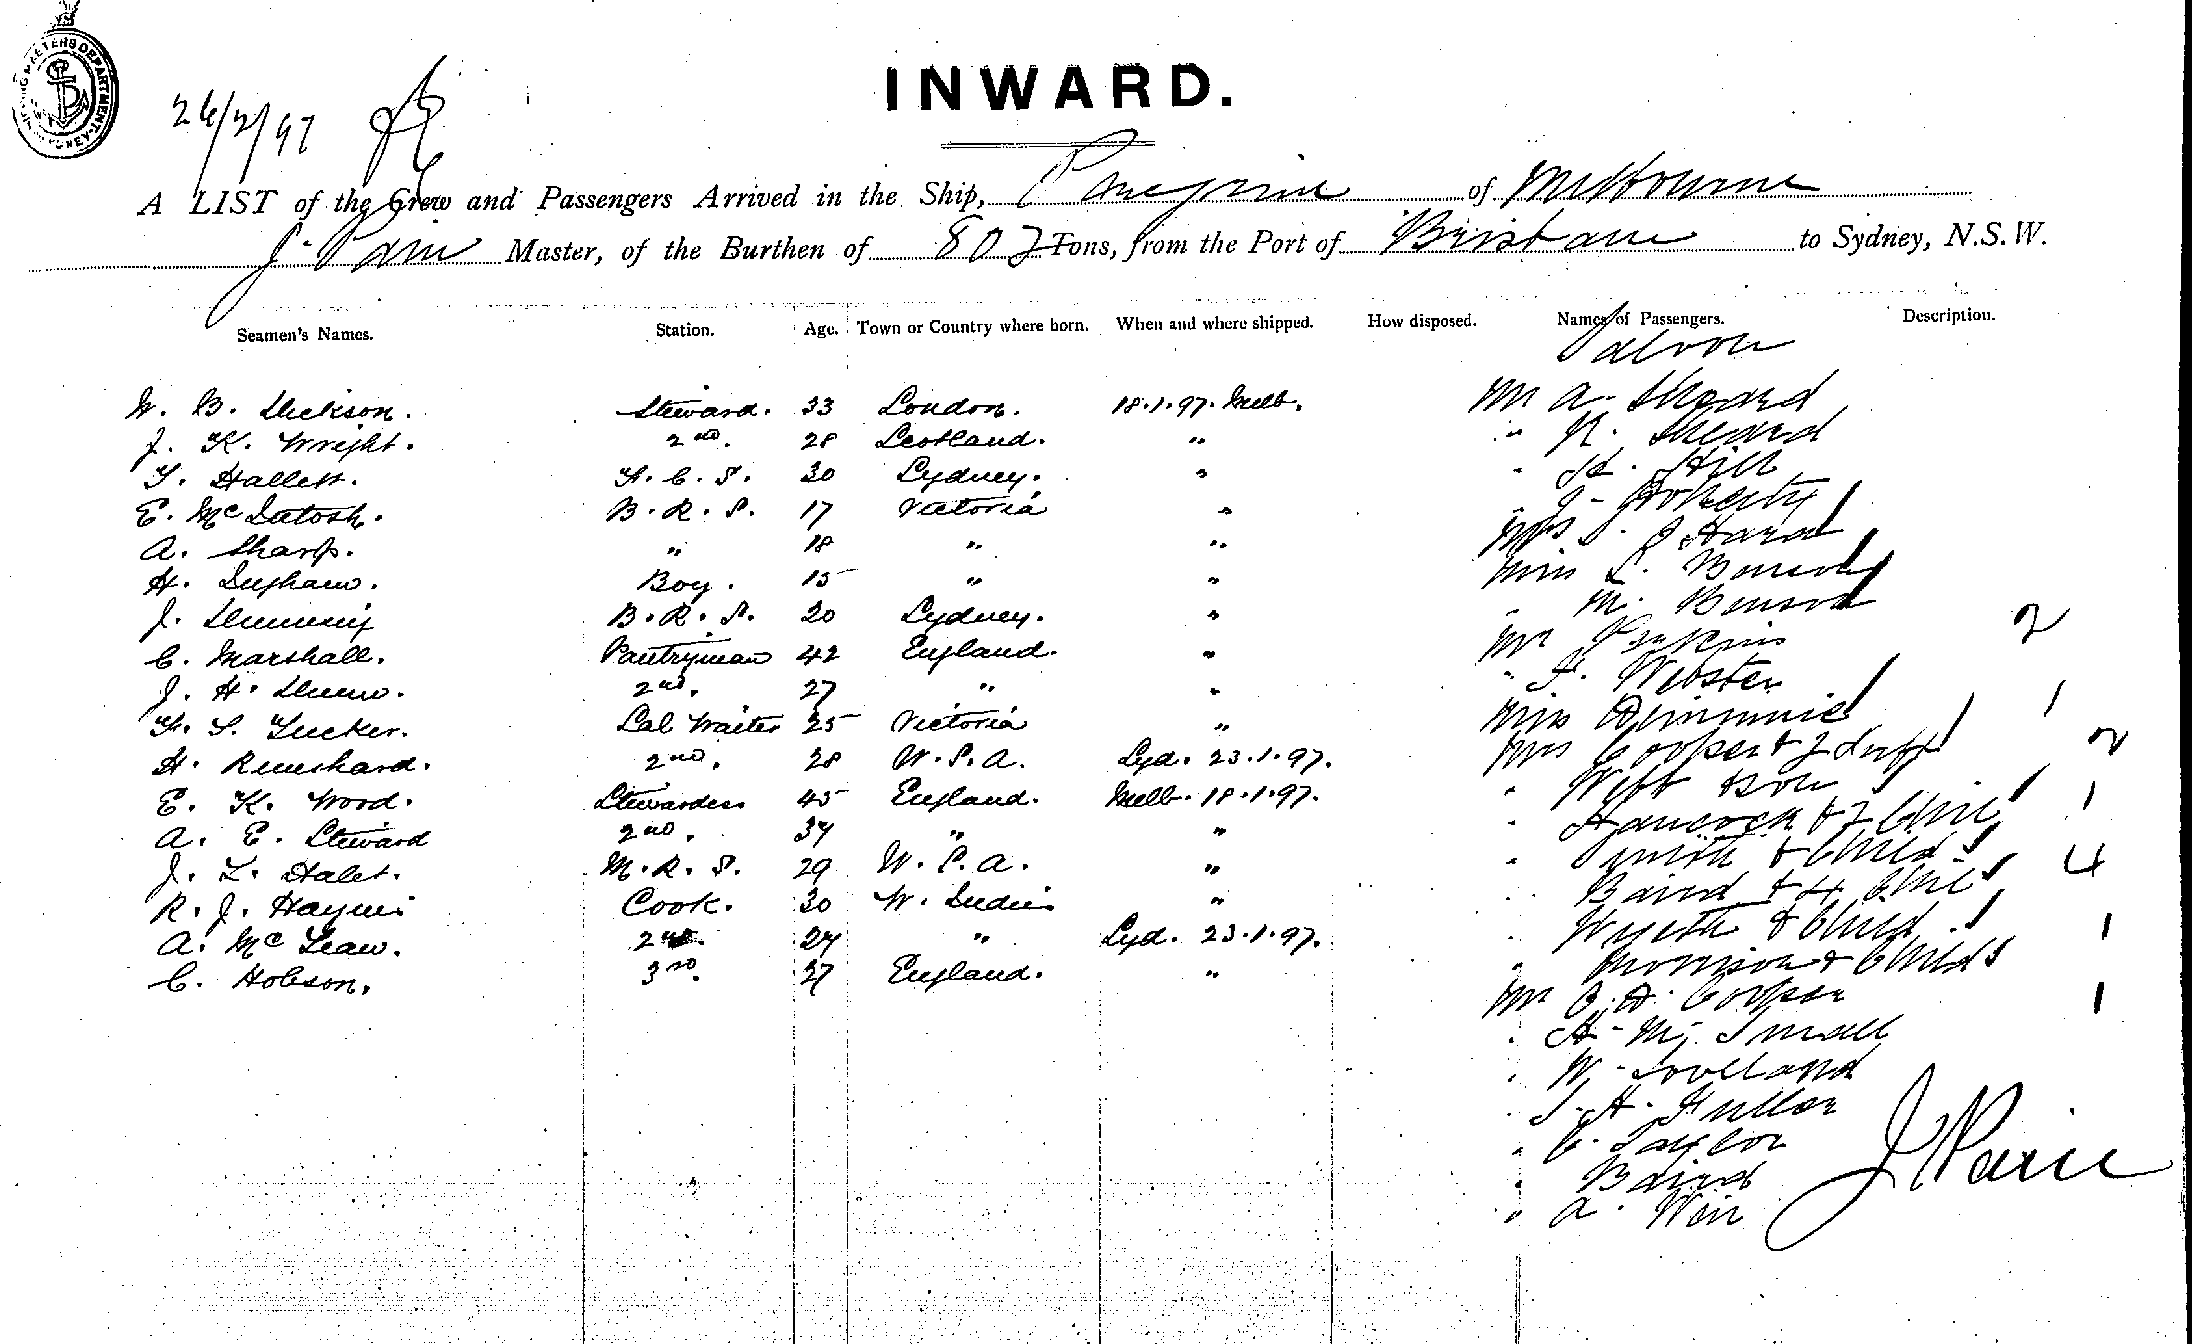 INWARD.
26/2/97
A LIST of the Crew and Passengers Arrived in the Ship, Peregrine of Melbourne
J. Pain Master, of the Burthen of 802 Tons, from the Port of Brisbane to Sydney, N.S.W.
Seamen's Names. Station. Age. Town or Country where born. When and where shipped. How disposed. Names of Passengers. Description.
Saloon
W. B. Dickson. Steward. 33 London. 18.1.97. Melb. Mr A. Sheard
J. K. Wright. 2nd. 28 Scotland. " " R. Sheard
T. Hallett. F. C. S. 30 Sydney. " " H. Hill
E. McIntosh. B. R. S. 17 Victoria " " J. Doherty
A. Sharp. " 18 " " Mrs O'Hara
H. Boy. 15 " " Miss L. Benson
J. B. R. S. 20 Sydney. " " M. Benson
C. Marshall. Pantryman 42 England. " Mr Perkins 2
J. H. 2nd. 27 " " " F. Webster
F. S. Tucker. Sal Waiter 25 Victoria " Miss 1
H. 2nd. 28 U.S.A. Syd. 23.1.97. Mrs Cooper & 2 2
E. K. Wood. Stewardess 45 England. Melb. 18.1.97. " Webb & Son 1
A. E. Steward 2nd. 34 " " " Hancock & 2 Chil
J. L. Hales. M. R. S. 29 U.S.A. " " Smith & Child 4
R. J. Haynes Cook. 30 W. Indies " " Baird & 4 Chil
A. McLean. 2nd. 24 " Syd. 23.1.97. " Wyeth & Child 1
C. Hobson. 3rd. 27 England. " " Morrison & Child
Mr C. H. Cooper 1
" H. M. Small
" W. Loveland
" J. A. Fuller
" C. Taylor
" Baird
" A. Weir
J Pain